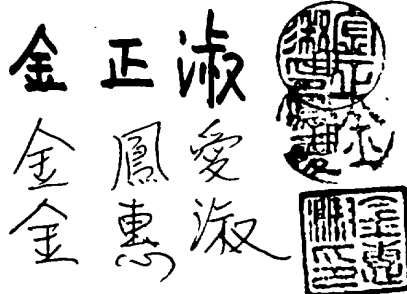 金正淑
金鳳愛
金惠淑